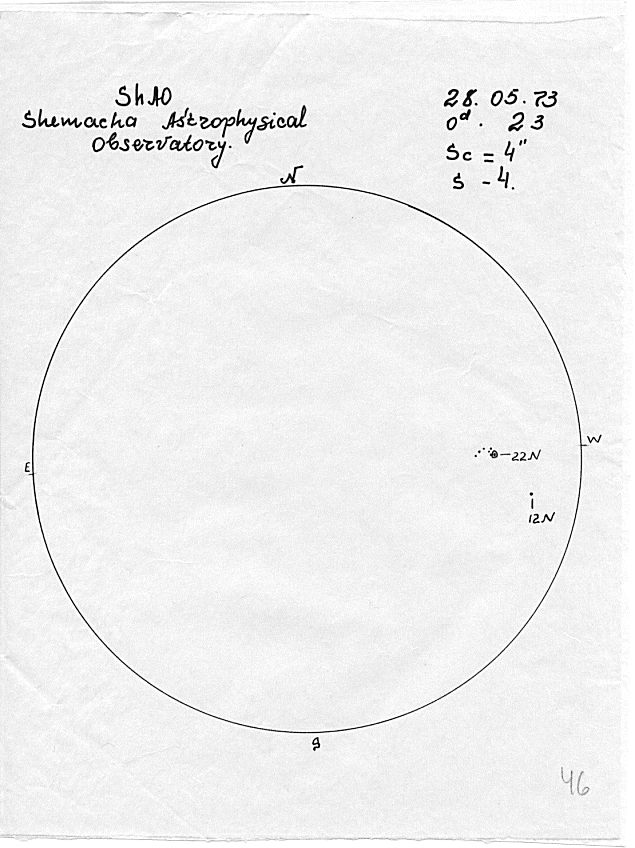 ShAO
Shemacha Astrophysical
Observatory.
28. 05. 73
0ᵈ. 23
Sc = 4"
S - 4.
N
W
E
22N
12N
S
46